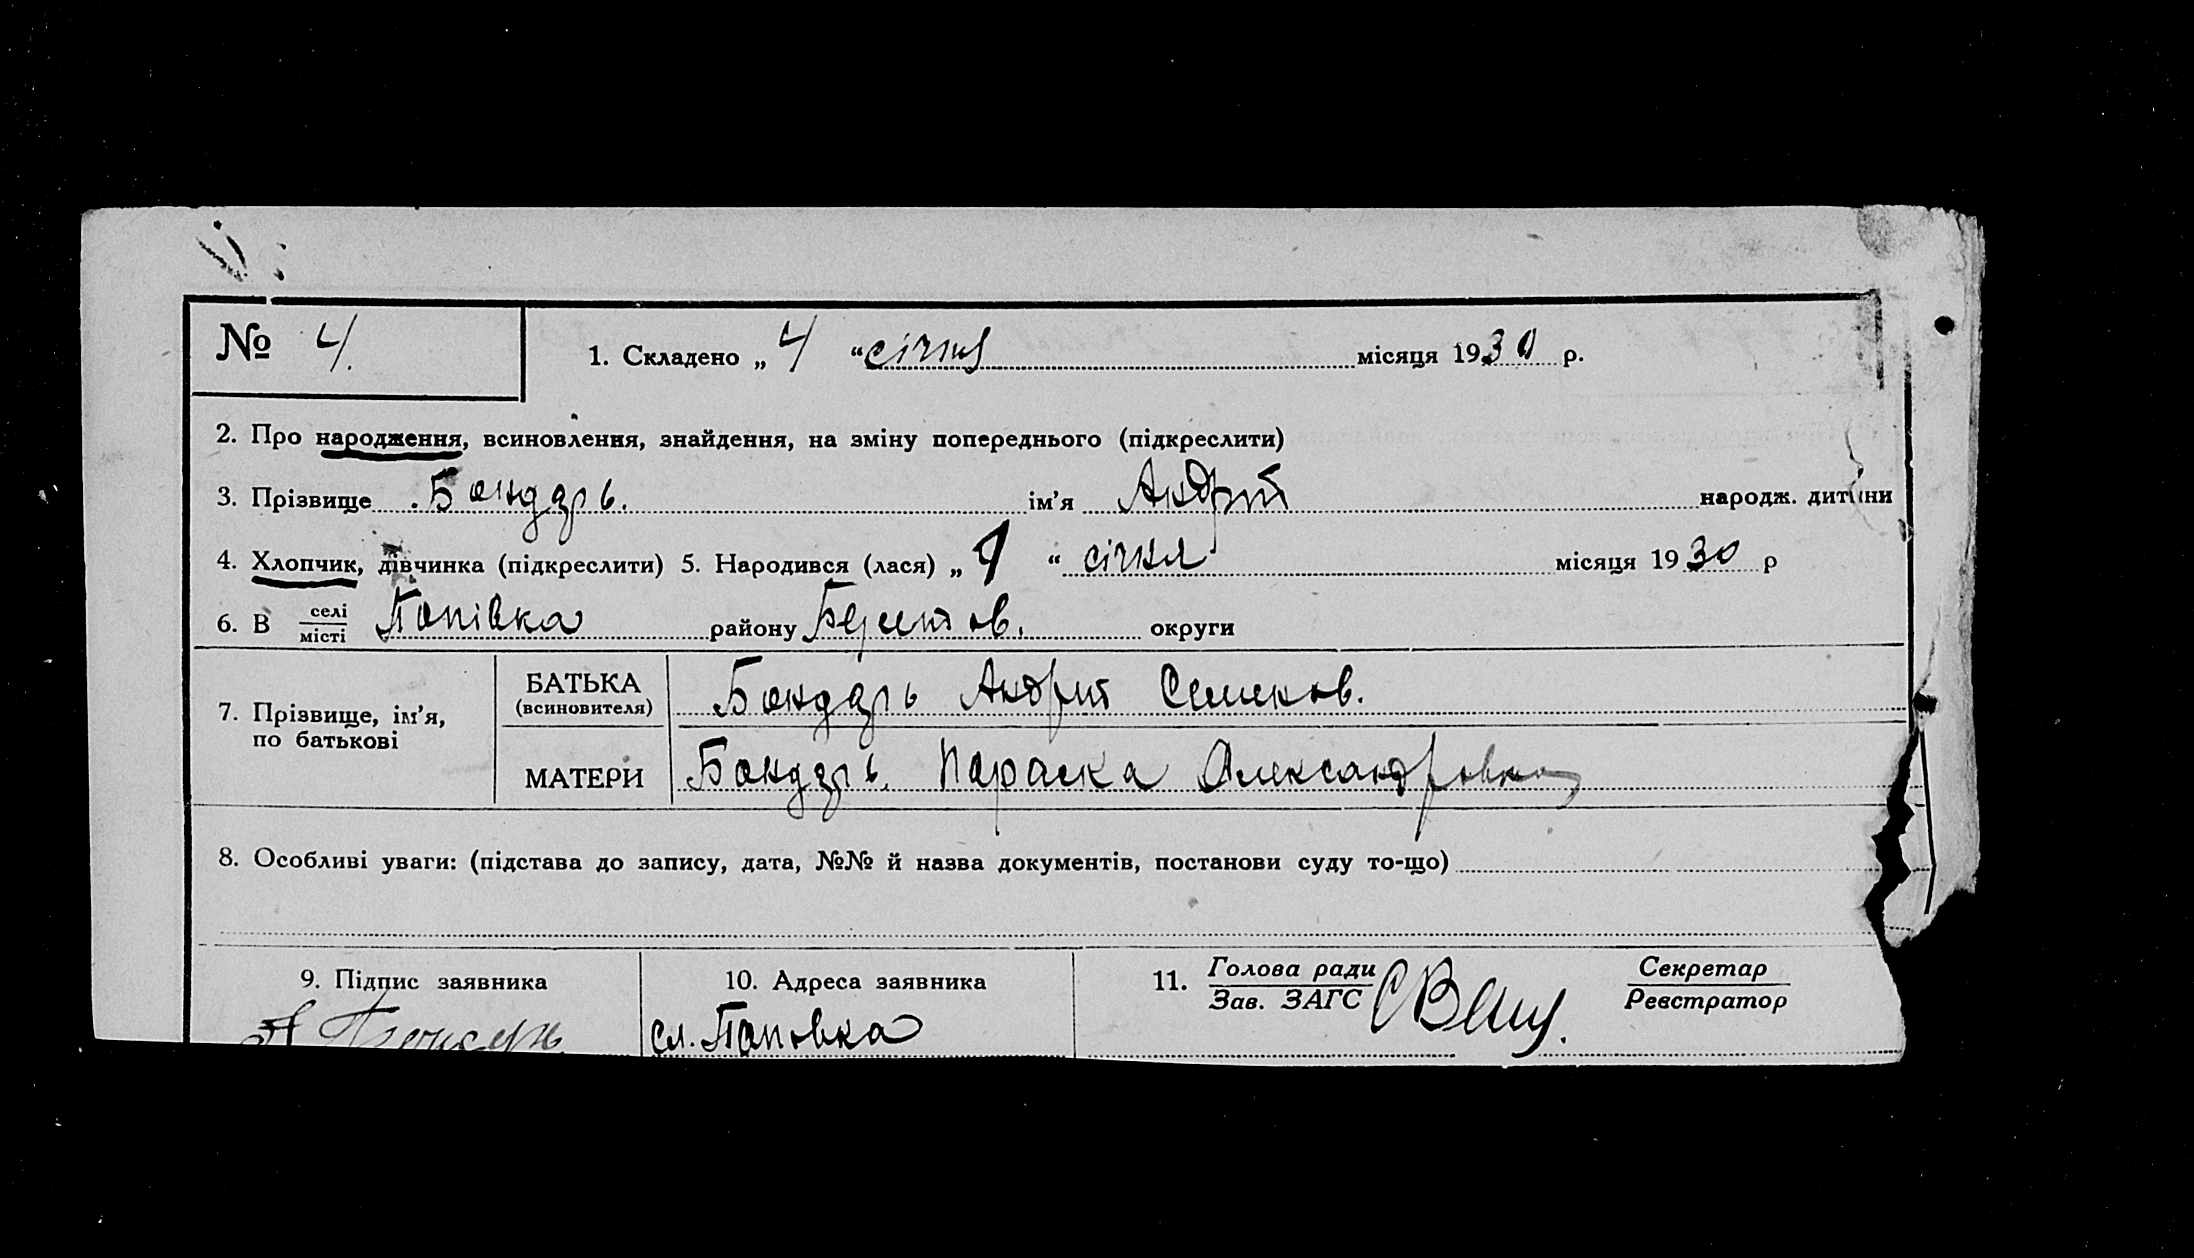 № 4.
1. Складено „ 4 “ січня місяця 1930 р.
2. Про народження, всиновлення, знайдення, на зміну попереднього (підкреслити)
3. Прізвище Бондарь. ім’я Андрій народж. дитини
4. Хлопчик, дівчинка (підкреслити) 5. Народився (лася) „ “ січня місяця 1930 р
6. В селі/місті Попівка району округи
7. Прізвище, ім’я, по батькові
БАТЬКА (всиновителя) Бондарь Андрій Семенов.
МАТЕРИ Бондарь. Параска Александровна
8. Особливі уваги: (підстава до запису, дата, №№ й назва документів, постанови суду то-що)
9. Підпис заявника 10. Адреса заявника 11. Голова ради/Зав. ЗАГС Секретар/Реєстратор
сл. Поповка